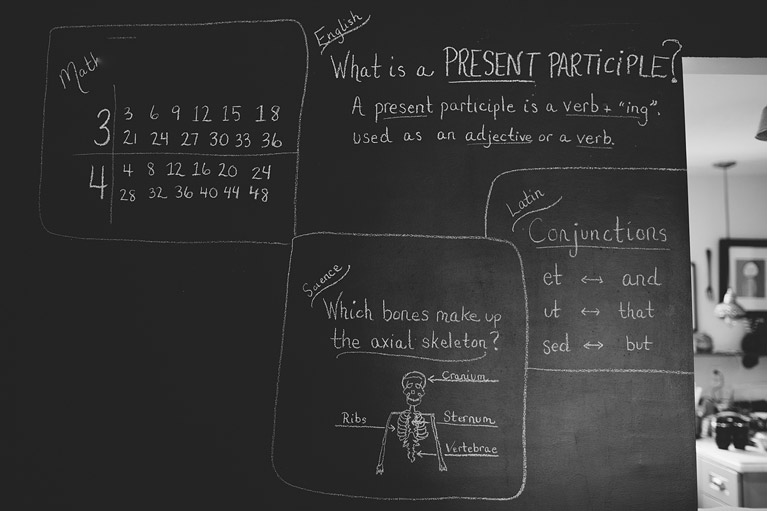 Math
3
3 6 9 12 15 18
21 24 27 30 33 36
4
4 8 12 16 20 24
28 32 36 40 44 48
English
What is a PRESENT PARTICIPLE?
A present participle is a verb + "ing",
used as an adjective or a verb.
Latin
Conjunctions
et ↔ and
ut ↔ that
sed ↔ but
Science
Which bones make up
the axial skeleton?
Cranium
Ribs
Sternum
Vertebrae